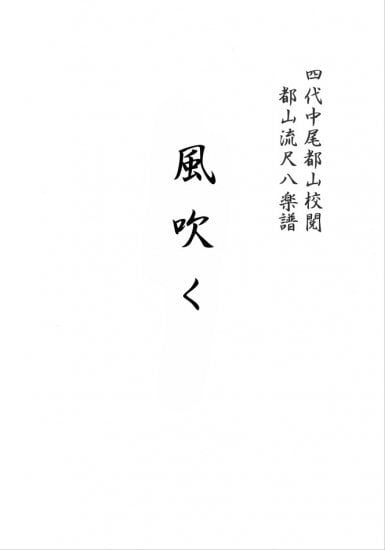 四代中尾都山校閲
都山流尺八楽譜
風吹く